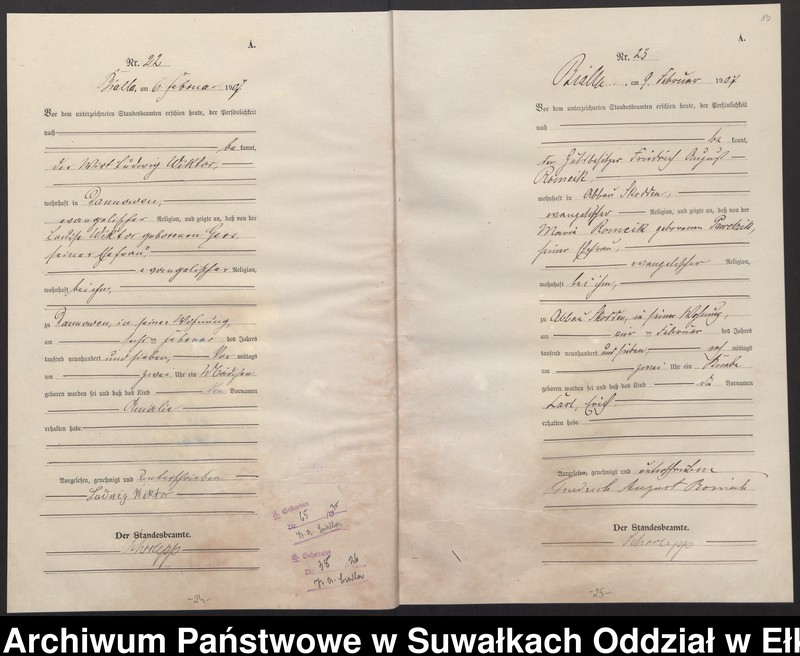 A.
Nr. 22
Bialla, am 6. Februar 1907
Vor dem unterzeichneten Standesbeamten erschien heute, der Persönlichkeit
nach
be kannt,
der Wirt Ludwig Wiktor,
wohnhaft in Dannowen,
evangelischer Religion, und zeigte an, daß von der
Wiktor geborenen
seiner Ehefrau,
evangelischer Religion,
wohnhaft bei ihm,
zu Dannowen, in seiner Wohnung,
am Februar des Jahres
tausend neunhundert und sieben, Vor mittags
um zwei Uhr ein Mädchen
geboren worden sei und daß das Kind Vornamen
Amalie
erhalten habe.
Vorgelesen, genehmigt und unterschrieben
Ludwig Wiktor
Der Standesbeamte.
-24-
A.
Nr. 23
Bialla, am 9. Februar 1907
Vor dem unterzeichneten Standesbeamten erschien heute, der Persönlichkeit
nach
be kannt,
der Gutsbesitzer Friedrich August
Romeik,
wohnhaft in Abbau Skodden,
evangelischer Religion, und zeigte an, daß von der
Maria Romeik geborenen Pawelzik,
seiner Ehefrau,
evangelischer Religion,
wohnhaft bei ihm,
zu Abbau Skodden, in seiner Wohnung,
am Februar des Jahres
tausend neunhundert und sieben, mittags
um zwei Uhr ein Knabe
geboren worden sei und daß das Kind die Vornamen
Karl, Erich
erhalten habe.
Vorgelesen, genehmigt und unterschrieben
Friedrich August Romeik
Der Standesbeamte.
-25-
Archiwum Państwowe w Suwałkach Oddział w Ełk